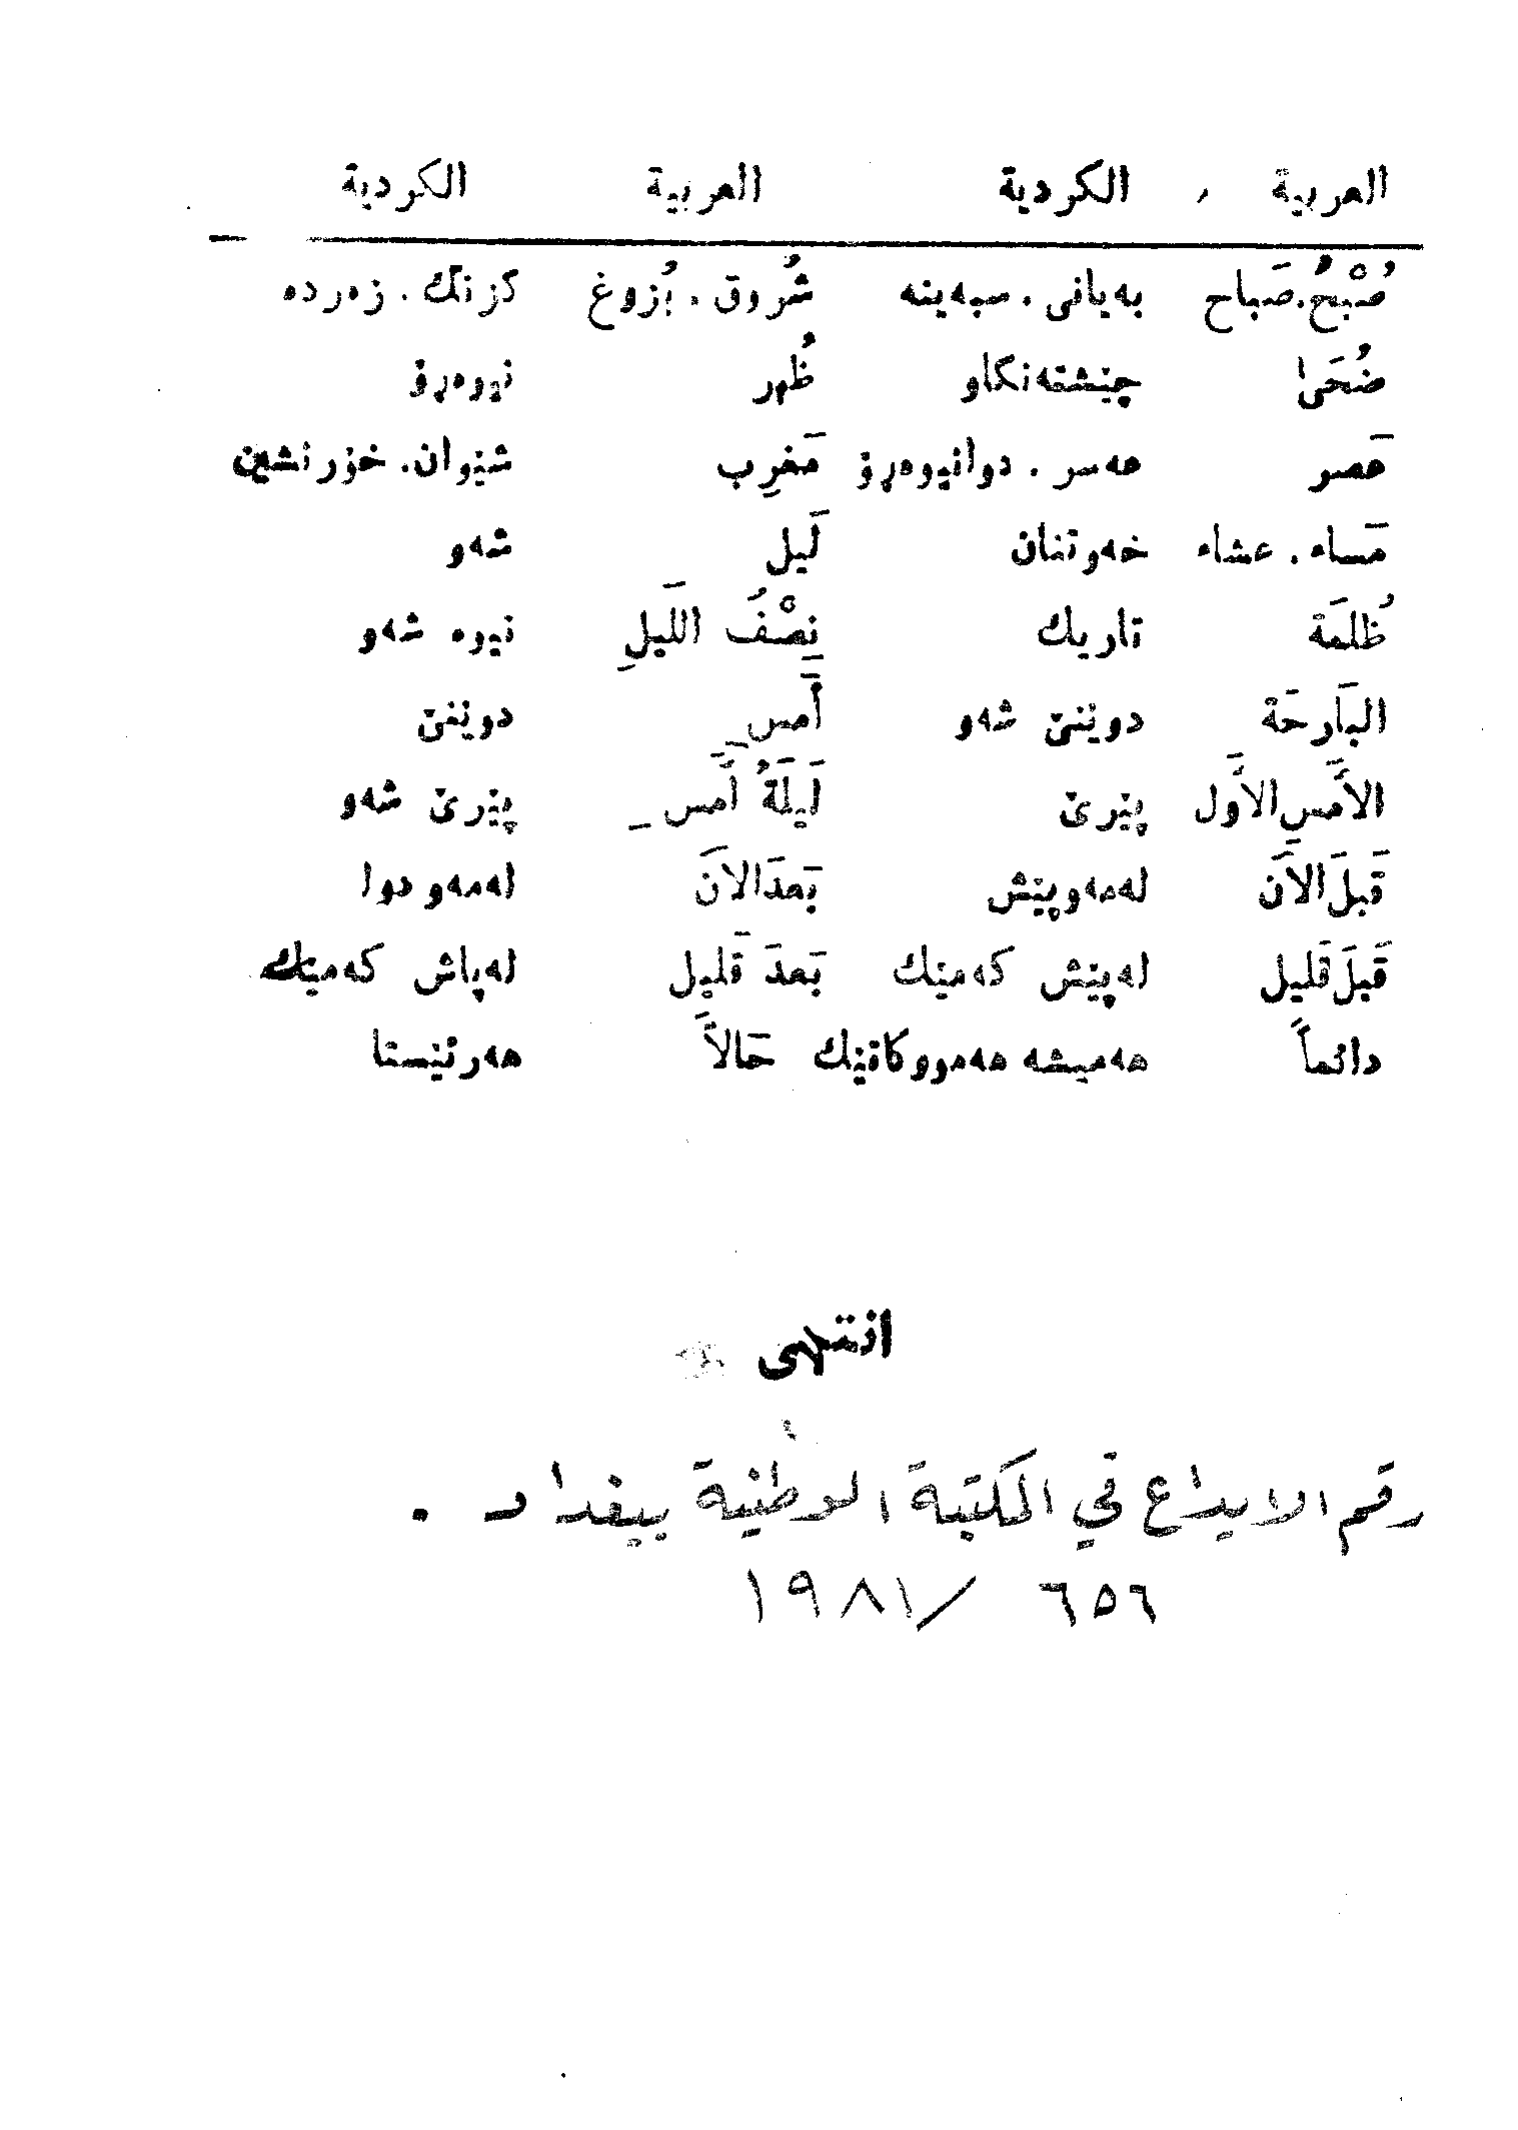 العربية الكردية العربية الكردية
صُبْحُ.صَباح بەیانی . سبەینە شُروق . بُزوغ گزنگ . زەردە
ضُحَیٰ چێشتەنگاو ظُهر نیوەڕۆ
عَصر عەسر . دوانیوەڕۆ مَغرِب شێوان. خۆرنشین
مَساء . عشاء خەوتنان لَیل شەو
ظُلمَة تاریك نِصْفُ اللَیلِ نیوە شەو
البَارحَة دوێنێ شەو أَمسِ دوێنێ
الأَمسِ الأَول پێرێ لَیلَةُ أَمسِ پێرێ شەو
قَبلَ الآن لەمەوپێش بَعدَالآن لەمەودوا
قَبلَ قَليل لەپێش کەمێك بَعدَ قَليل لەپاش کەمێك
دائماً هەمیشە هەمووکاتێك حَالاً هەرئێستا
انتهی
رقم الايداع في المكتبة الوطنية ببغداد .
٦٥٦ /١٩٨١